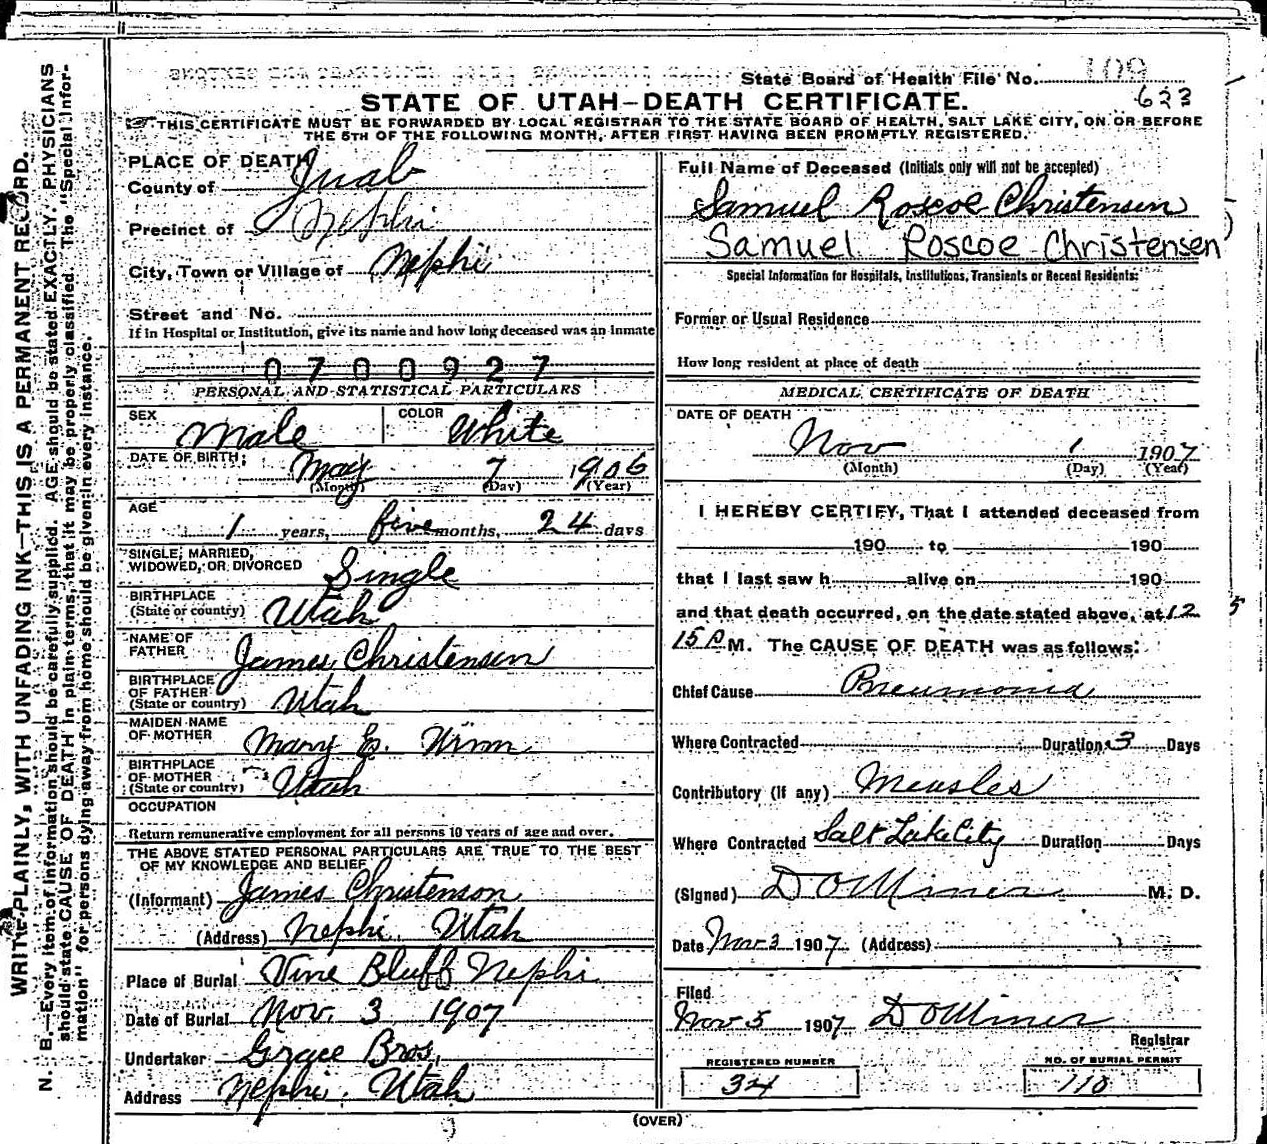 State Board of Health File No. 109
623
STATE OF UTAH—DEATH CERTIFICATE.
THIS CERTIFICATE MUST BE FORWARDED BY LOCAL REGISTRAR TO THE STATE BOARD OF HEALTH, SALT LAKE CITY, ON OR BEFORE
THE 5TH OF THE FOLLOWING MONTH, AFTER FIRST HAVING BEEN PROMPTLY REGISTERED.
PLACE OF DEATH
County of Juab
Precinct of Nephi
City, Town or Village of Nephi
Street and No.
If in Hospital or Institution, give its name and how long deceased was an inmate
0700927
PERSONAL AND STATISTICAL PARTICULARS
SEX Male COLOR White
DATE OF BIRTH May 7 1906
(Month) (Day) (Year)
AGE
1 years, five months, 24 days
SINGLE, MARRIED,
WIDOWED, OR DIVORCED Single
BIRTHPLACE
(State or country) Utah
NAME OF
FATHER James Christensen
BIRTHPLACE
OF FATHER
(State or country) Utah
MAIDEN NAME
OF MOTHER Mary E. Winn
BIRTHPLACE
OF MOTHER
(State or country) Utah
OCCUPATION
Return remunerative employment for all persons 10 years of age and over.
THE ABOVE STATED PERSONAL PARTICULARS ARE TRUE TO THE BEST
OF MY KNOWLEDGE AND BELIEF
(Informant) James Christenson
(Address) Nephi, Utah
Place of Burial Vine Bluff Nephi
Date of Burial Nov. 3 1907
Undertaker Grace Bros.
Address Nephi, Utah
Full Name of Deceased (Initials only will not be accepted)
Samuel Roscoe Christensen
Samuel Roscoe Christensen
Special Information for Hospitals, Institutions, Transients or Recent Residents:
Former or Usual Residence
How long resident at place of death
MEDICAL CERTIFICATE OF DEATH
DATE OF DEATH
Nov 1 1907
(Month) (Day) (Year)
I HEREBY CERTIFY, That I attended deceased from
190 to 190
that I last saw h alive on 190
and that death occurred, on the date stated above, at 12 5
15 P M. The CAUSE OF DEATH was as follows:
Chief Cause Pneumonia
Where Contracted Duration 3 Days
Contributory (If any) Measles
Where Contracted Salt Lake City Duration Days
(Signed) D O Miner M. D.
Date Nov 3 1907 (Address)
Filed
Nov 5 1907 D O Miner
Registrar
REGISTERED NUMBER
34
NO. OF BURIAL PERMIT
110
(OVER)
WRITE PLAINLY, WITH UNFADING INK—THIS IS A PERMANENT RECORD.
N. B.—Every item of information should be carefully supplied. AGE should be stated EXACTLY. PHYSICIANS
should state CAUSE OF DEATH in plain terms, that it may be properly classified. The "Special Infor-
mation" for persons dying away from home should be given in every instance.